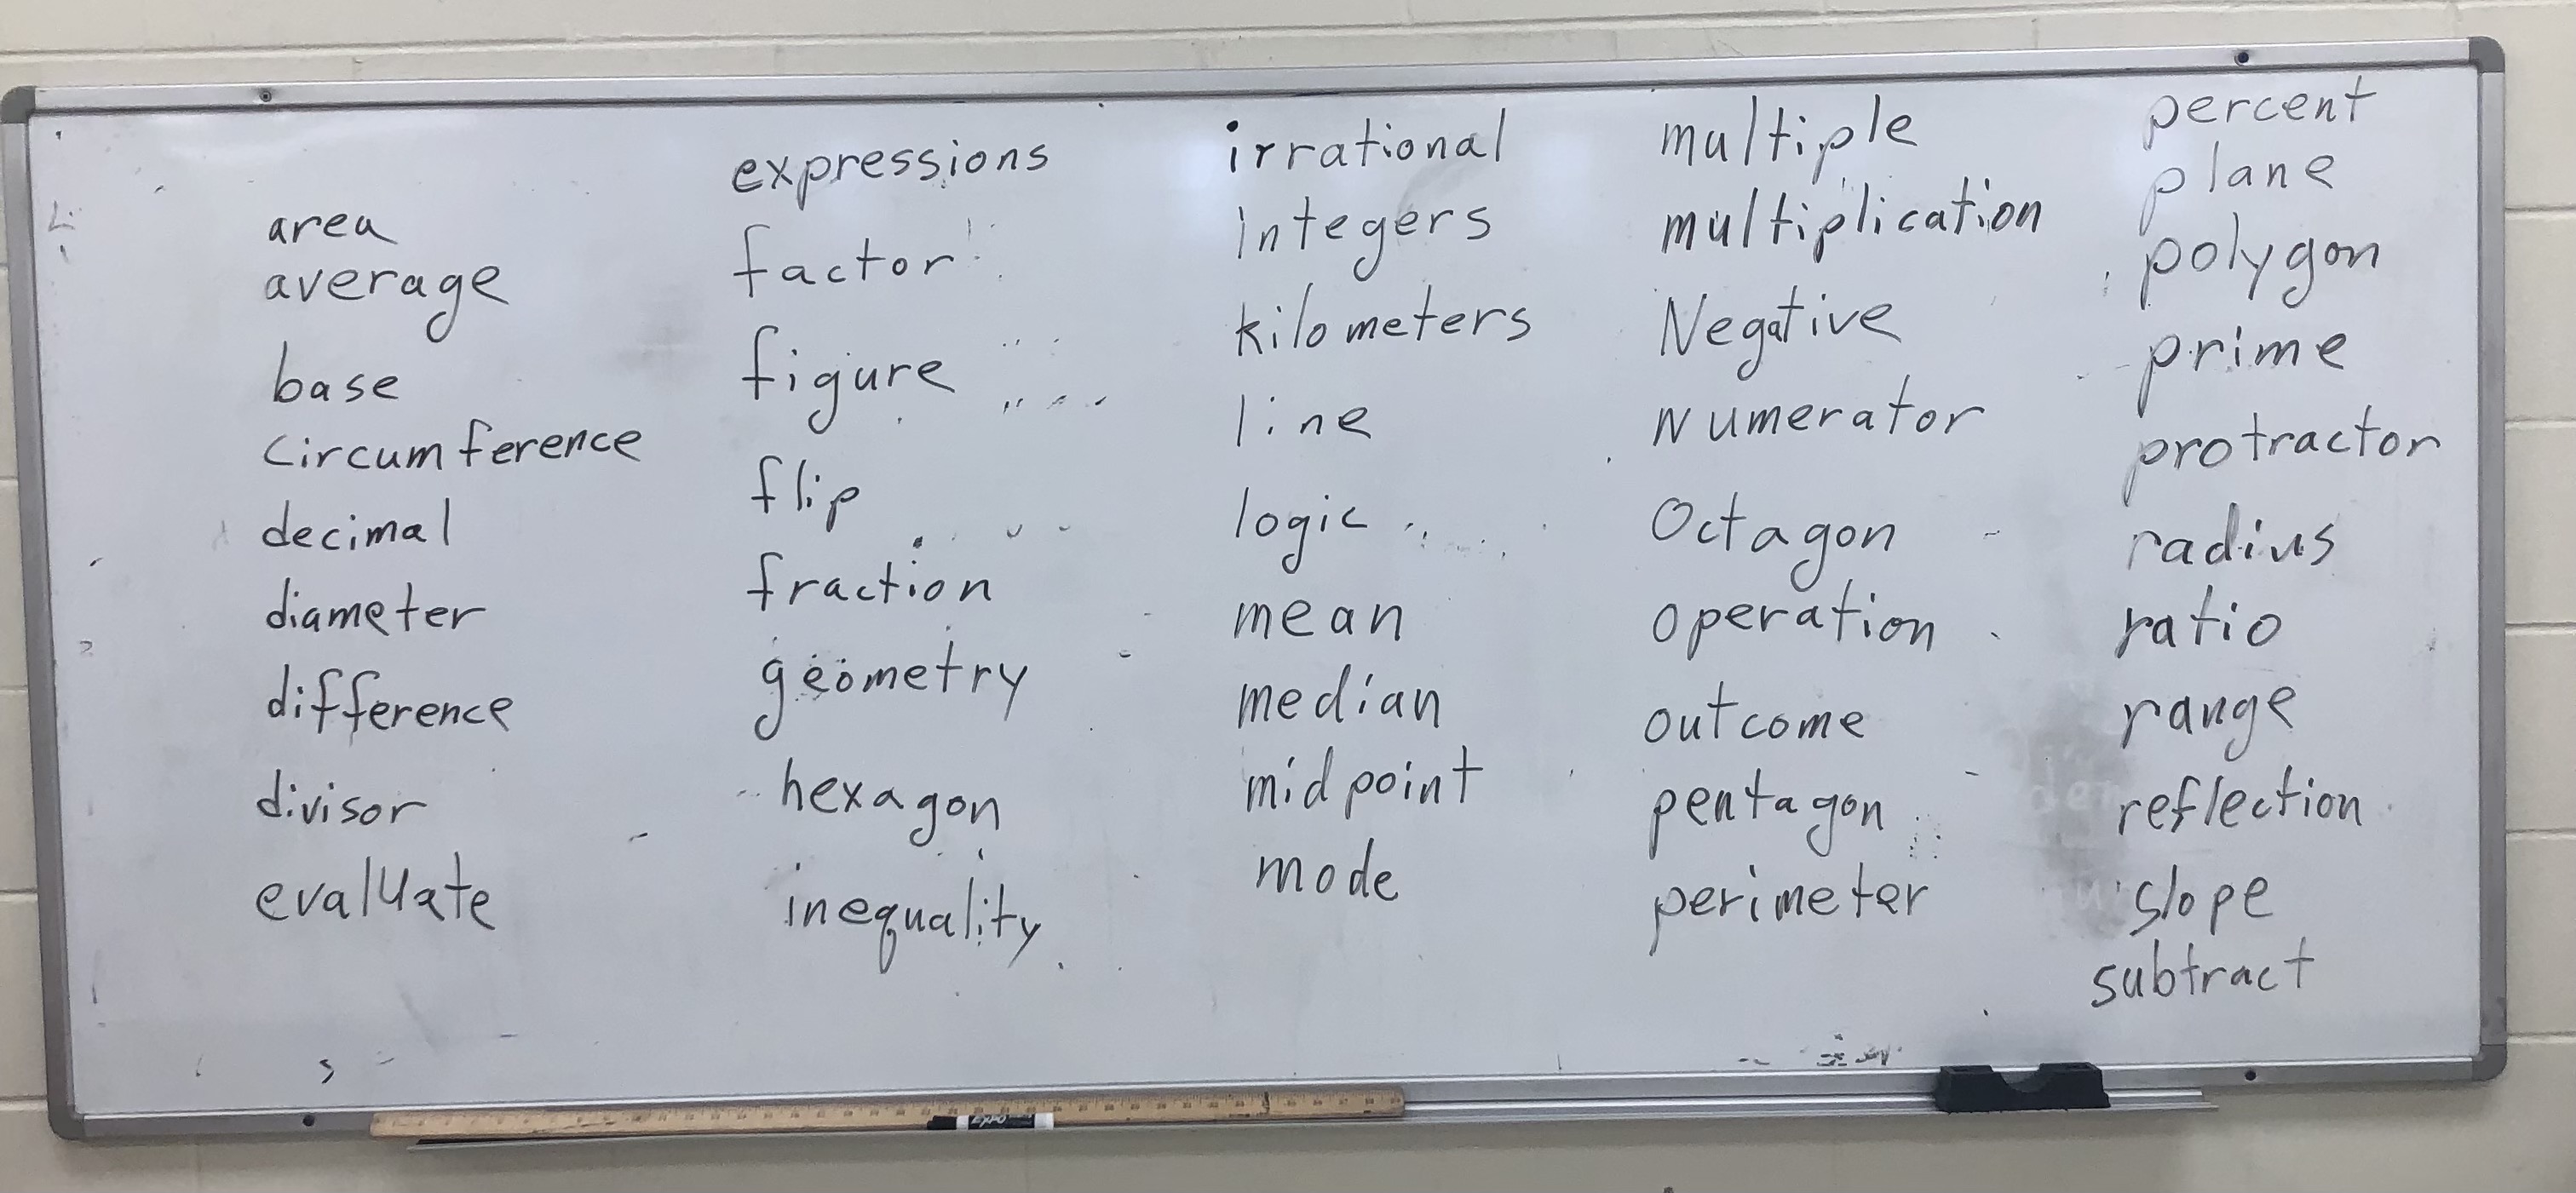 area
average
base
circumference
decimal
diameter
difference
divisor
evaluate
expressions
factor
figure
flip
fraction
geometry
hexagon
inequality
irrational
integers
kilometers
line
logic
mean
median
midpoint
mode
multiple
multiplication
Negative
Numerator
Octagon
operation
outcome
pentagon
perimeter
percent
plane
polygon
prime
protractor
radius
ratio
range
reflection
slope
subtract
EXPO